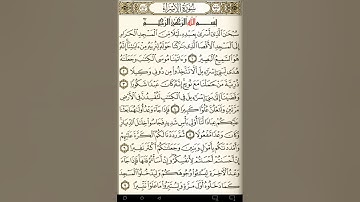 سُورَةُ الإِسْرَاءِ
بِسْمِ اللَّهِ الرَّحْمَٰنِ الرَّحِيمِ
سُبْحَٰنَ ٱلَّذِىٓ أَسْرَىٰ بِعَبْدِهِۦ لَيْلًا مِّنَ ٱلْمَسْجِدِ ٱلْحَرَامِ
إِلَى ٱلْمَسْجِدِ ٱلْأَقْصَا ٱلَّذِى بَٰرَكْنَا حَوْلَهُۥ لِنُرِيَهُۥ مِنْ ءَايَٰتِنَآ إِنَّهُۥ
هُوَ ٱلسَّمِيعُ ٱلْبَصِيرُ ١ وَءَاتَيْنَا مُوسَى ٱلْكِتَٰبَ وَجَعَلْنَٰهُ
هُدًى لِّبَنِىٓ إِسْرَٰٓءِيلَ أَلَّا تَتَّخِذُوا۟ مِن دُونِى وَكِيلًا ٢
ذُرِّيَّةَ مَنْ حَمَلْنَا مَعَ نُوحٍ إِنَّهُۥ كَانَ عَبْدًا شَكُورًا ٣
وَقَضَيْنَآ إِلَىٰ بَنِىٓ إِسْرَٰٓءِيلَ فِى ٱلْكِتَٰبِ لَتُفْسِدُنَّ فِى ٱلْأَرْضِ
مَرَّتَيْنِ وَلَتَعْلُنَّ عُلُوًّا كَبِيرًا ٤ فَإِذَا جَآءَ وَعْدُ أُولَىٰهُمَا
بَعَثْنَا عَلَيْكُمْ عِبَادًا لَّنَآ أُو۟لِى بَأْسٍ شَدِيدٍ فَجَاسُوا۟ خِلَٰلَ ٱلدِّيَارِ
وَكَانَ وَعْدًا مَّفْعُولًا ٥ ثُمَّ رَدَدْنَا لَكُمُ ٱلْكَرَّةَ عَلَيْهِمْ
وَأَمْدَدْنَٰكُم بِأَمْوَٰلٍ وَبَنِينَ وَجَعَلْنَٰكُمْ أَكْثَرَ نَفِيرًا ٦
إِنْ أَحْسَنتُمْ أَحْسَنتُمْ لِأَنفُسِكُمْ وَإِنْ أَسَأْتُمْ فَلَهَا فَإِذَا جَآءَ
وَعْدُ ٱلْءَاخِرَةِ لِيَسُـۥٓـُٔوا۟ وُجُوهَكُمْ وَلِيَدْخُلُوا۟ ٱلْمَسْجِدَ
كَمَا دَخَلُوهُ أَوَّلَ مَرَّةٍ وَلِيُتَبِّرُوا۟ مَا عَلَوْا۟ تَتْبِيرًا ٧